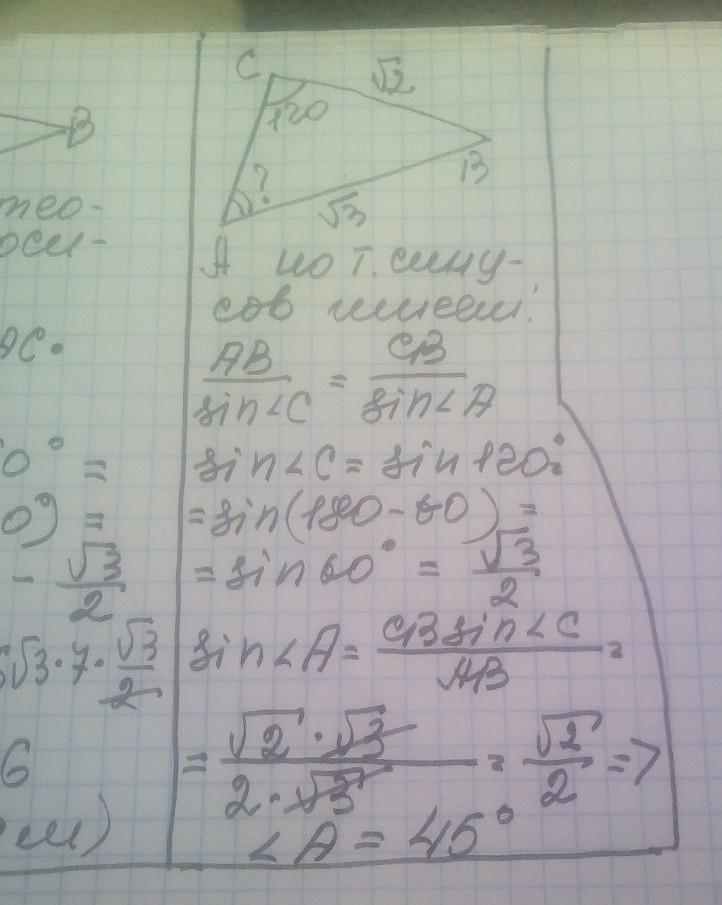 B
тео-
оси-
AC.
0° =
0°) =
- √3/2
√3·7·√3/2
6
м)
C
√2
120
?
√3
B
A по т. сину-
сов имеем:
AB/sin∠C = CB/sin∠A
sin∠C = sin120°=
=sin(180-60) =
= sin60° = √3/2
sin∠A = CB sin∠C/AB =
= √2·√3/2·√3 = √2/2 =>
∠A = 45°